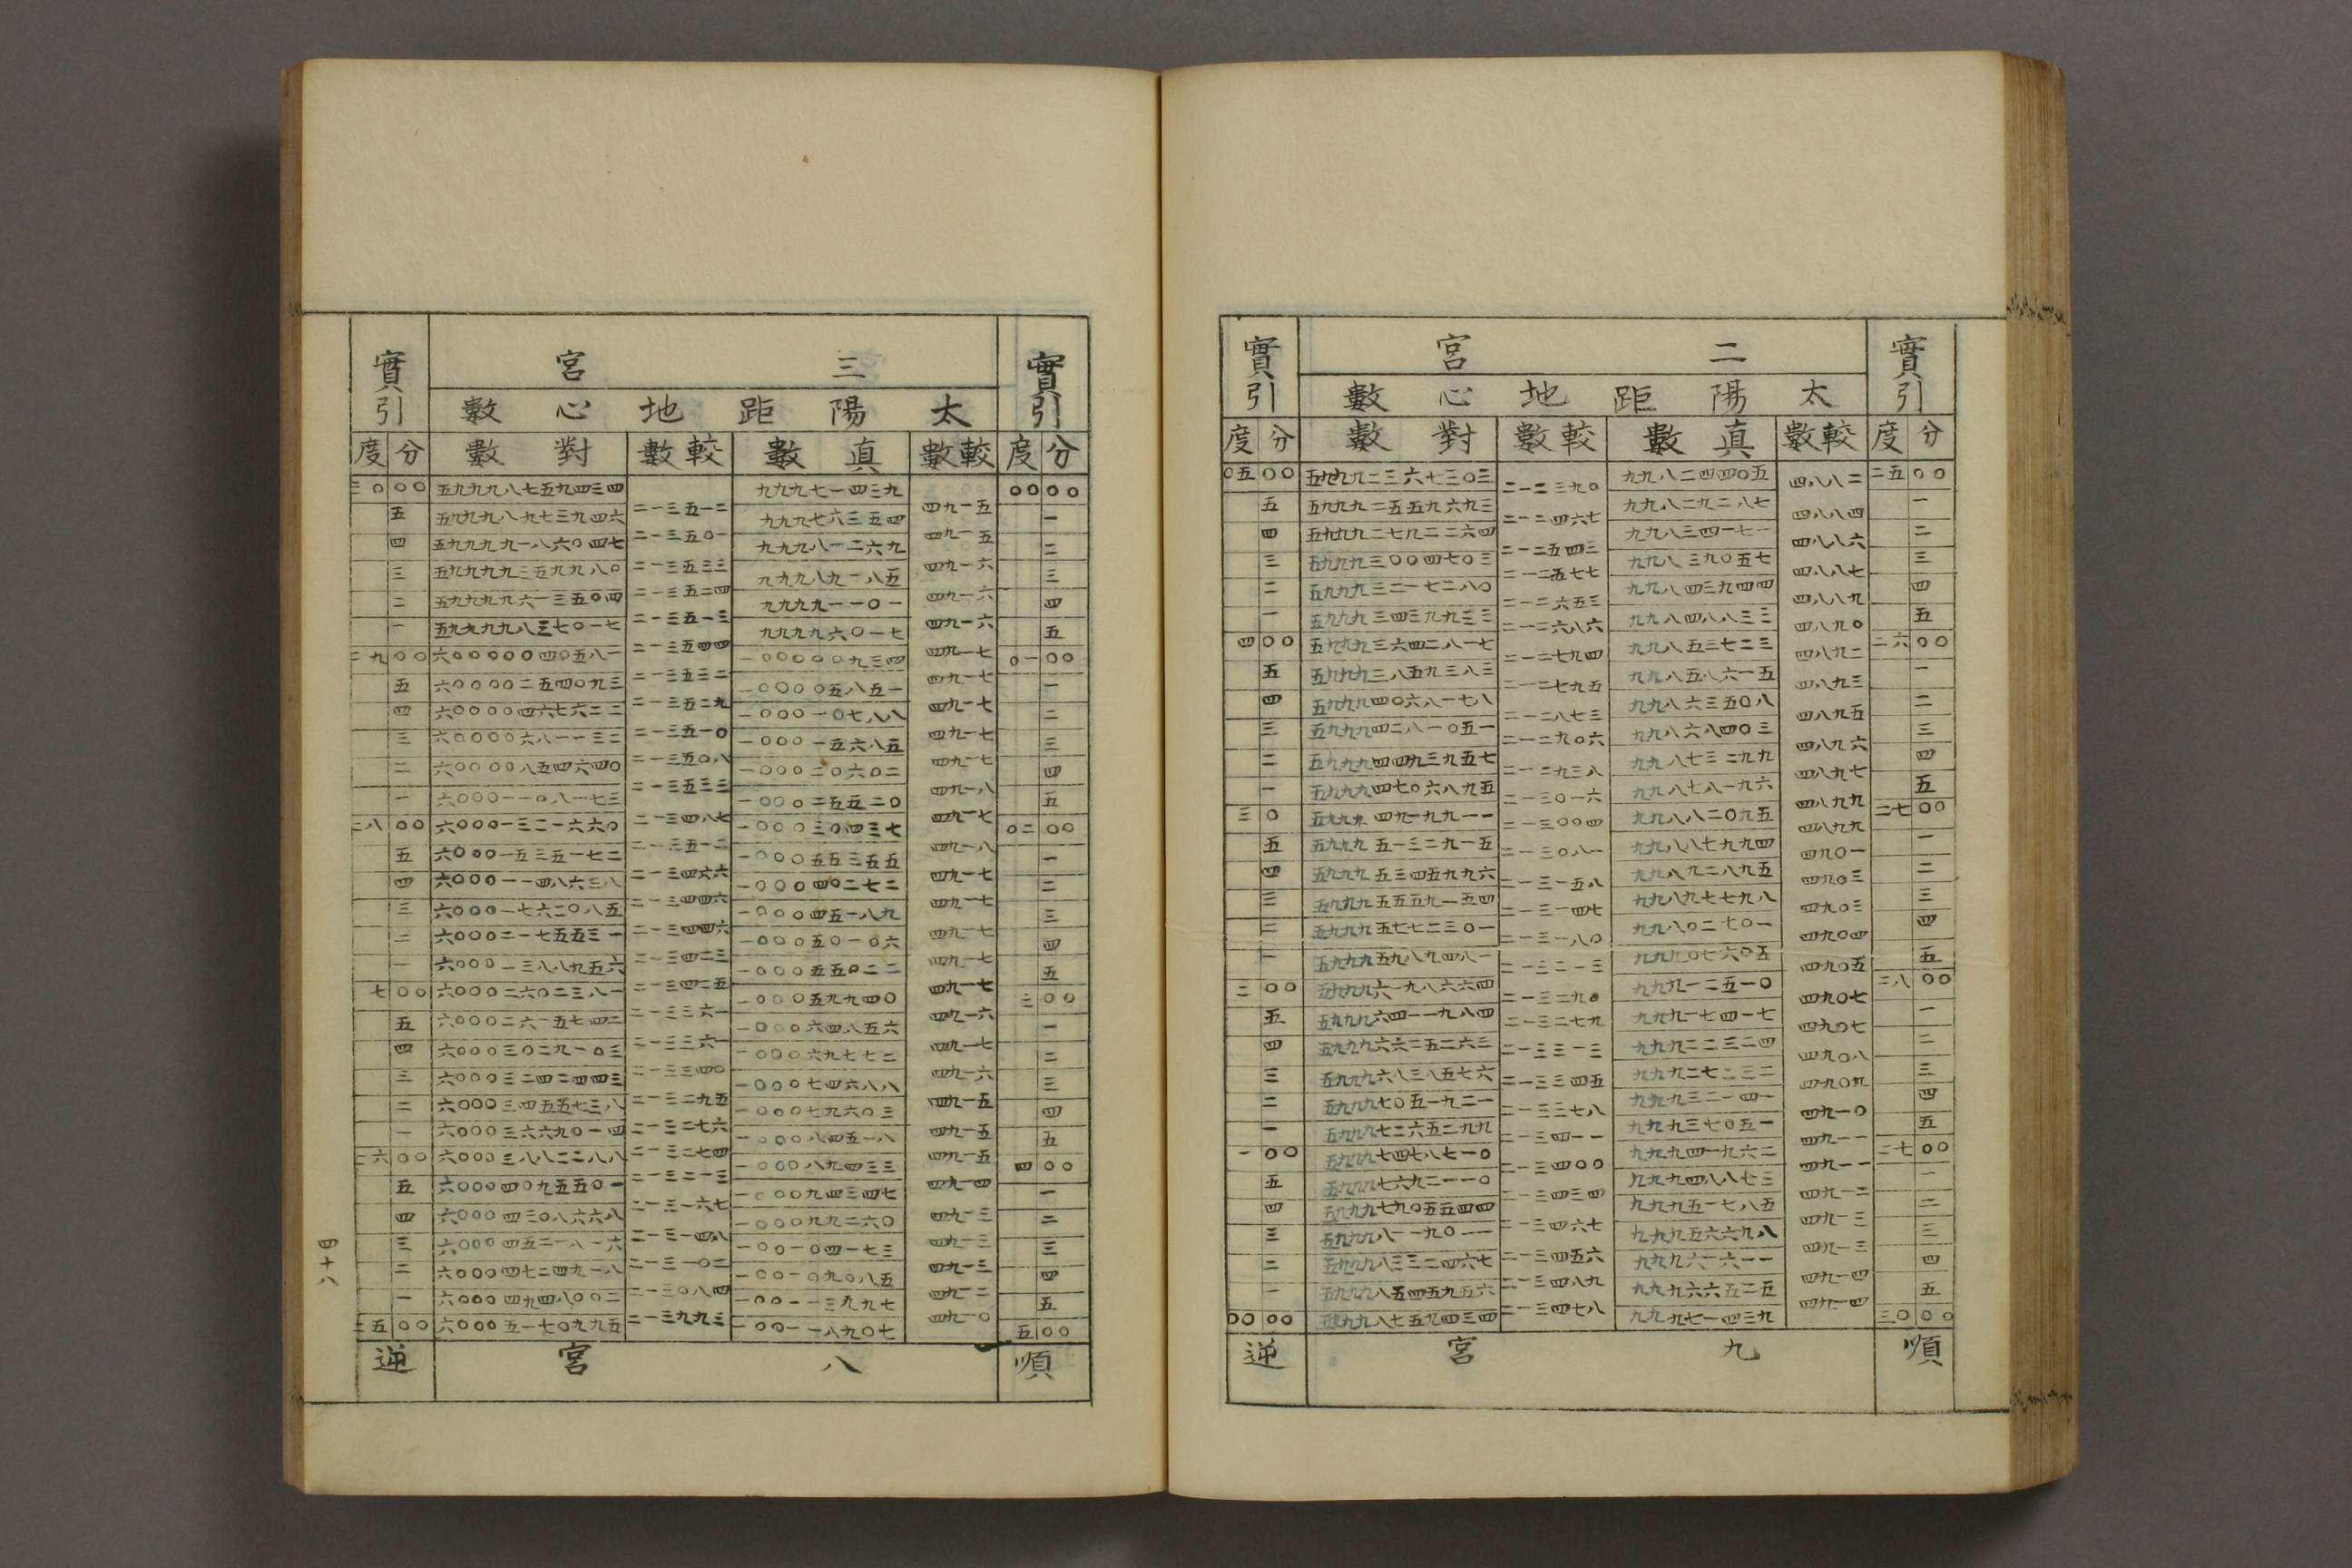 實引 二宮 實引
太陽距地心數
度分 較數 真數 較數 對數 度分
二五〇〇 四八八二 九九八二四四〇五 二一二三九〇 五九九九二三六七三〇三 〇五〇〇
一 四八八四 九九八二九二八七 二一二四六七 五九九九二五五九六九三 五
二 四八八六 九九八三四一七一 二一二五四三 五九九九二七九二二六四 四
三 四八八七 九九八三九〇五七 二一二五七七 五九九九三〇〇四七〇三 三
四 四八八九 九九八四三九四四 二一二六五三 五九九九三二一七二八〇 二
五 四八九〇 九九八四八八三三 二一二六八六 五九九九三四三九九三三 一
二六〇〇 四八九二 九九八五三七二三 二一二七九四 五九九九三六四二八一七 四〇〇
一 四八九三 九九八五八六一五 二一二七九五 五九九九三八五九三八三 五
二 四八九五 九九八六三五〇八 二一二八七三 五九九九四〇六八一七八 四
三 四八九六 九九八六八四〇三 二一二九〇六 五九九九四二八一〇五一 三
四 四八九七 九九八七三二九九 二一二九三八 五九九九四四九三九五七 二
五 四八九九 九九八七八一九六 二一三〇一六 五九九九四七〇六八九五 一
二七〇〇 四八九九 九九八八二〇九五 二一三〇〇四 五九九九四九一九九一一 三〇
一 四九〇一 九九八八七九九四 二一三〇八一 五九九九五一三二九一五 五
二 四九〇三 九九八九二八九五 二一三一五八 五九九九五三四五九九六 四
三 四九〇三 九九八九七七九八 二一三一四七 五九九九五五五九一五四 三
四 四九〇四 九九八〇二七〇一 二一三一八〇 五九九九五七七二三〇一 二
五 四九〇五 九九九〇七六〇五 二一三二一三 五九九九五九八九四八一 一
二八〇〇 四九〇七 九九九一二五一〇 二一三二九〇 五九九九六一九八六六四 二〇〇
一 四九〇七 九九九一七四一七 二一三二七九 五九九九六四一一九八四 五
二 四九〇八 九九九二二三二四 二一三三一三 五九九九六六二五二六三 四
三 四九〇九 九九九二七二三二 二一三三四五 五九九九六八三八五七六 三
四 四九一〇 九九九三二一四一 二一三三七八 五九九九七〇五一九二一 二
五 四九一一 九九九三七〇五一 二一三四一一 五九九九七二六五二九九 一
二七〇〇 四九一一 九九九四一九六二 二一三四〇〇 五九九九七四七八七一〇 一〇〇
一 四九一二 九九九四八八七三 二一三四三四 五九九九七六九二一一〇 五
二 四九一三 九九九五一七八五 二一三四六七 五九九九七九〇五五四四 四
三 四九一三 九九九五六六九八 二一三四五六 五九九九八一一九〇一一 三
四 四九一四 九九九六一六一一 二一三四八九 五九九九八三三二四六七 二
五 四九一四 九九九六六五二五 二一三四七八 五九九九八五四五九五六 一
三〇〇〇 九九九七一四三九 五九九九八七五九四三四 〇〇〇〇
順 九宮 逆
實引 三宮 實引
太陽距地心數
度分 較數 真數 較數 對數 度分
〇〇〇〇 四九一五 九九九七一四三九 二一三五一二 五九九九八七五九四三四 三〇〇〇
一 四九一五 九九九七六三五四 二一三五〇一 五九九九八九七三九四六 五
二 四九一六 九九九八一二六九 二一三五三三 五九九九九一八六〇四七 四
三 四九一六 九九九八九一八五 二一三五二四 五九九九九三五九九八〇 三
四 四九一六 九九九九一一〇一 二一三五一三 五九九九九六一三五〇四 二
五 四九一七 九九九九六〇一七 二一三五四四 五九九九九八三七〇一七 一
〇一〇〇 四九一七 一〇〇〇〇〇九三四 二一三五三二 六〇〇〇〇〇四〇五八一 二九〇〇
一 四九一七 一〇〇〇〇五八五一 二一三五二九 六〇〇〇〇二五四〇九三 五
二 四九一七 一〇〇〇一〇七八八 二一三五一〇 六〇〇〇〇四六七六二二 四
三 四九一七 一〇〇〇一五六八五 二一三五〇八 六〇〇〇〇六八一一三二 三
四 四九一八 一〇〇〇二〇六〇二 二一三五三三 六〇〇〇〇八五四六四〇 二
五 四九一七 一〇〇〇二五五二〇 二一三四八七 六〇〇〇一一〇八一七三 一
〇二〇〇 四九一八 一〇〇〇三〇四三七 二一三五一二 六〇〇〇一三二一六六〇 二八〇〇
一 四九一七 一〇〇〇五五三五五 二一三四六六 六〇〇〇一五三五一七二 五
二 四九一七 一〇〇〇四〇二七二 二一三四四六 六〇〇〇一一四八六三八 四
三 四九一七 一〇〇〇四五一八九 二一三四四六 六〇〇〇一七六二〇八五 三
四 四九一七 一〇〇〇五〇一〇六 二一三四二三 六〇〇〇二一七五五三一 二
五 四九一七 一〇〇〇五五〇二二 二一三四二五 六〇〇〇一三八八九五六 一
三〇〇 四九一六 一〇〇〇五九九四〇 二一三三六一 六〇〇〇二六〇二三八一 七〇〇
一 四九一七 一〇〇〇六四八五六 二一三三六一 六〇〇〇二六一五七四二 五
二 四九一六 一〇〇〇六九七七二 二一三三四〇 六〇〇〇三〇二九一〇三 四
三 四九一五 一〇〇〇七四六八八 二一三二九五 六〇〇〇三二四二四四三 三
四 四九一五 一〇〇〇七九六〇三 二一三二七六 六〇〇〇三四五五七三八 二
五 四九一五 一〇〇〇八四五一八 二一三二七四 六〇〇〇三六六九〇一四 一
四〇〇 四九一四 一〇〇〇八九四三三 二一三二一三 六〇〇〇三八八二二八八 二六〇〇
一 四九一三 一〇〇〇九四三四七 二一三一六七 六〇〇〇四〇九五五〇一 五
二 四九一三 一〇〇〇九九二六〇 二一三一四八 六〇〇〇四三〇八六六八 四
三 四九一三 一〇〇一〇四一七三 二一三一〇二 六〇〇〇四五二一八一六 三
四 四九一二 一〇〇一〇九〇八五 二一三〇八四 六〇〇〇四七三四九一八 二
五 四九一〇 一〇〇一一三九九七 二一三九九三 六〇〇〇四九四八〇〇二 一
五〇〇 一〇〇一一八九〇七 六〇〇〇五一七〇九九五 二五〇〇
順 八宮 逆
四十八